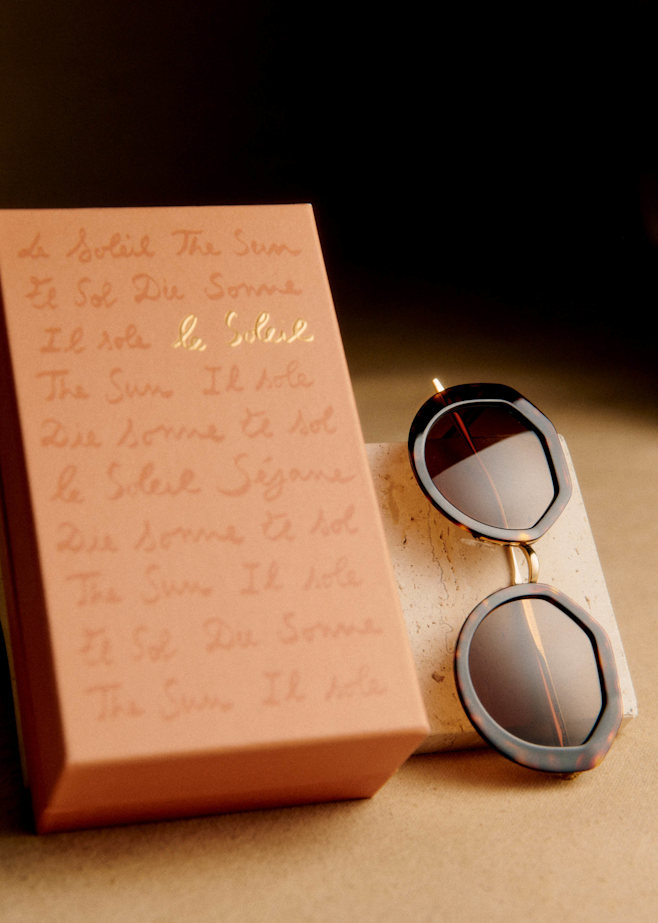 Le Soleil The Sun
El Sol Die Sonne
Il sole le Soleil
The Sun Il sole
Die sonne El sol
le Soleil Sézane
Die sonne El sol
The Sun Il sole
El Sol Die Sonne
The Sun Il sole